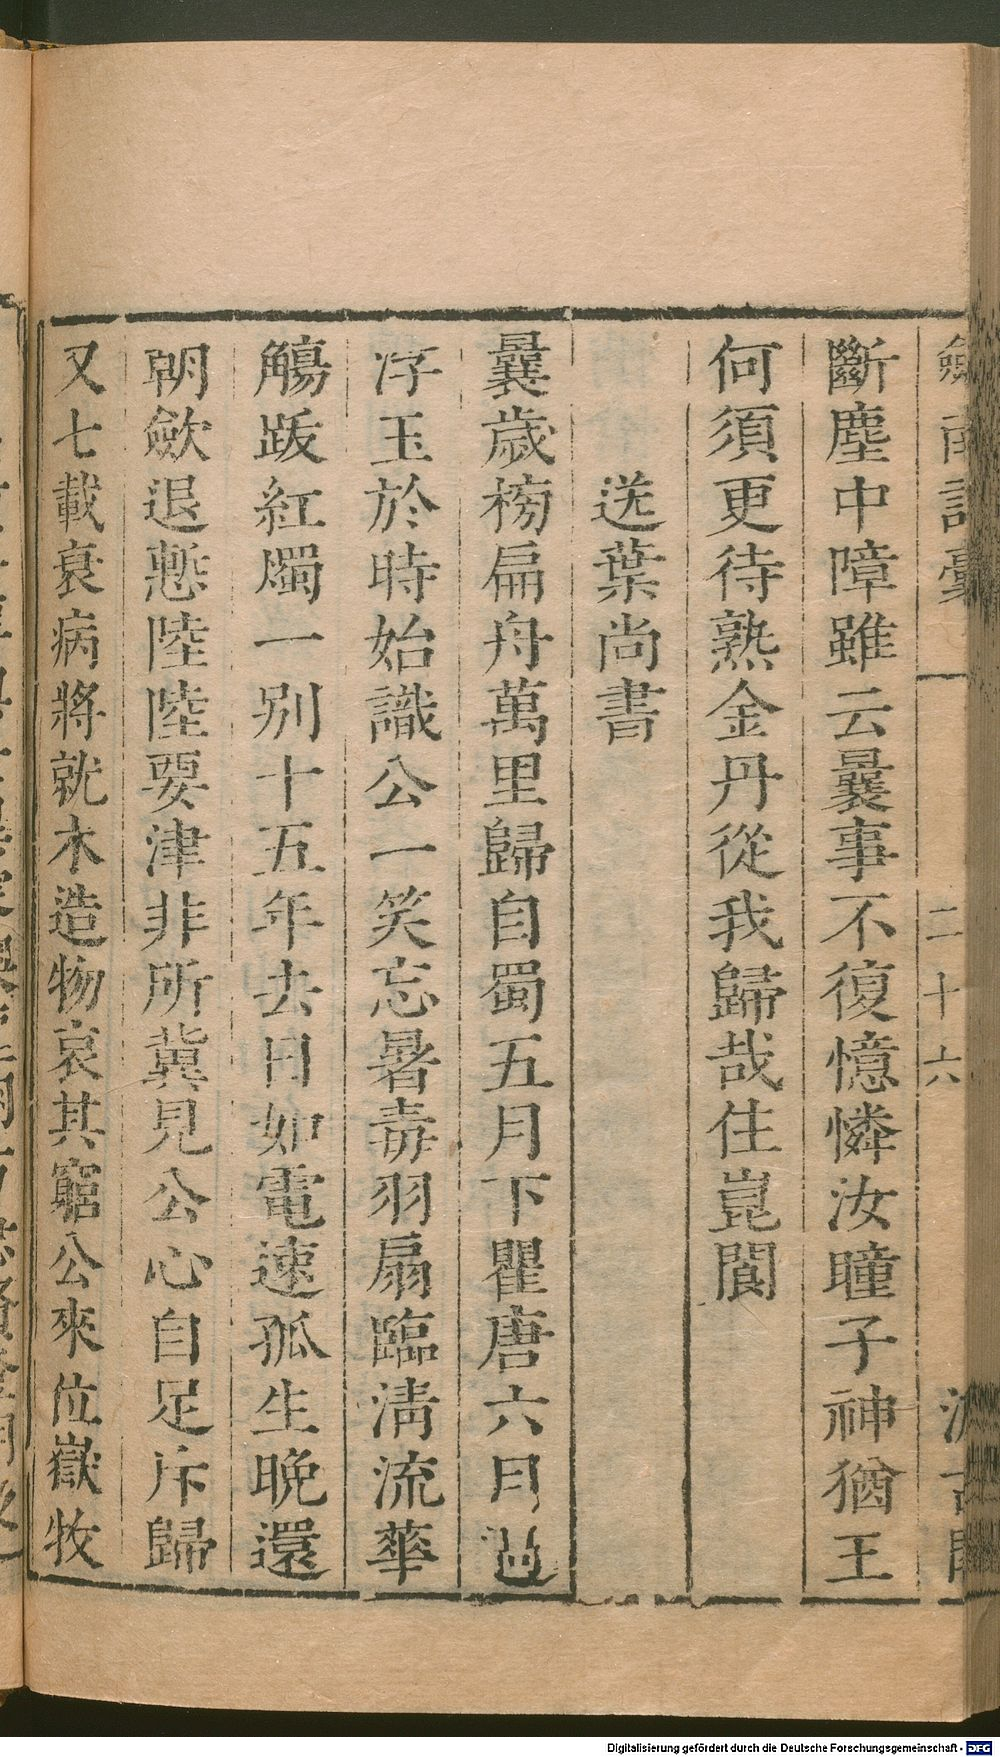 劍南詩稾 二十六 汲古閣
斷塵中障雖云曩事不復憶憐汝瞳子神猶王
何須更待熟金丹從我歸哉住崑閬
送葉尚書
曩歲榜扁舟萬里歸自蜀五月下瞿唐六月過
浮玉於時始識公一笑忘暑毒羽扇臨淸流華
觴跋紅燭一别十五年去日如電速孤生晚還
朝歛退慙陸陸要津非所冀見公心自足斥歸
又七載衰病將就木造物哀其窮公來位嶽牧
Digitalisierung gefördert durch die Deutsche Forschungsgemeinschaft - DFG